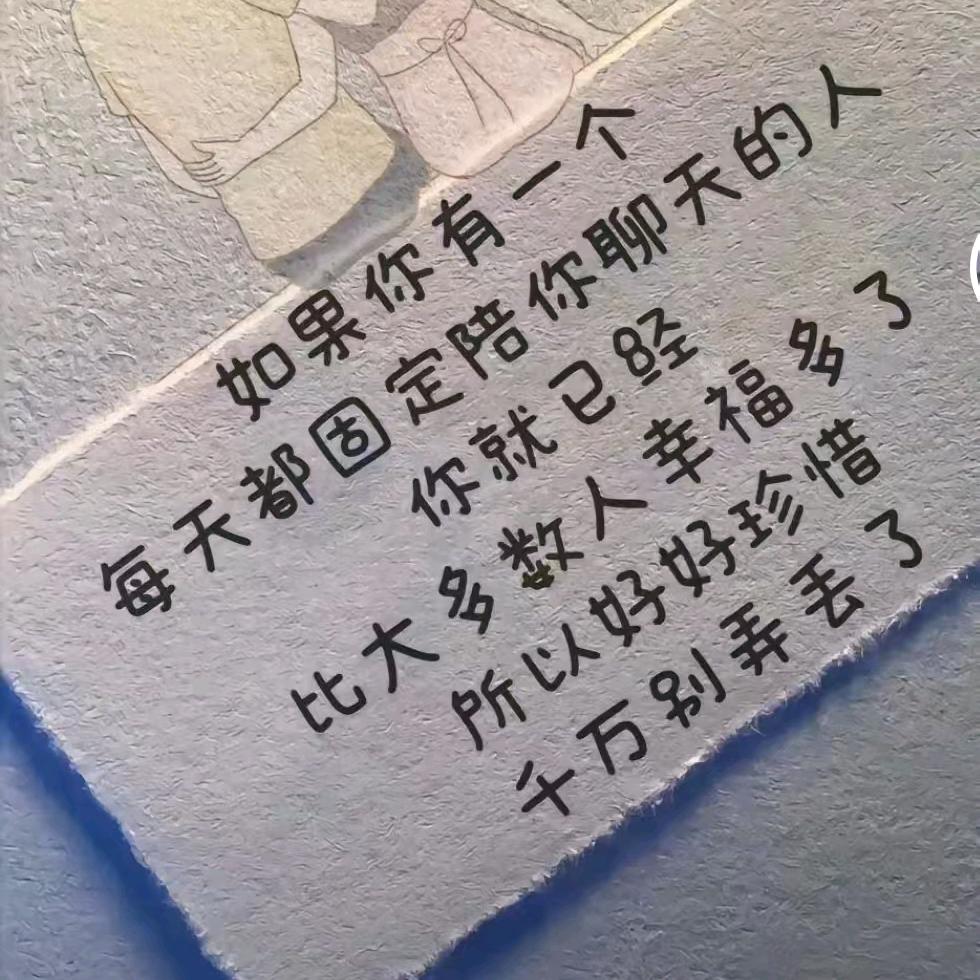 如果你有一个
每天都固定陪你聊天的人
你就已经
比大多数人幸福多了
所以好好珍惜
千万别弄丢了